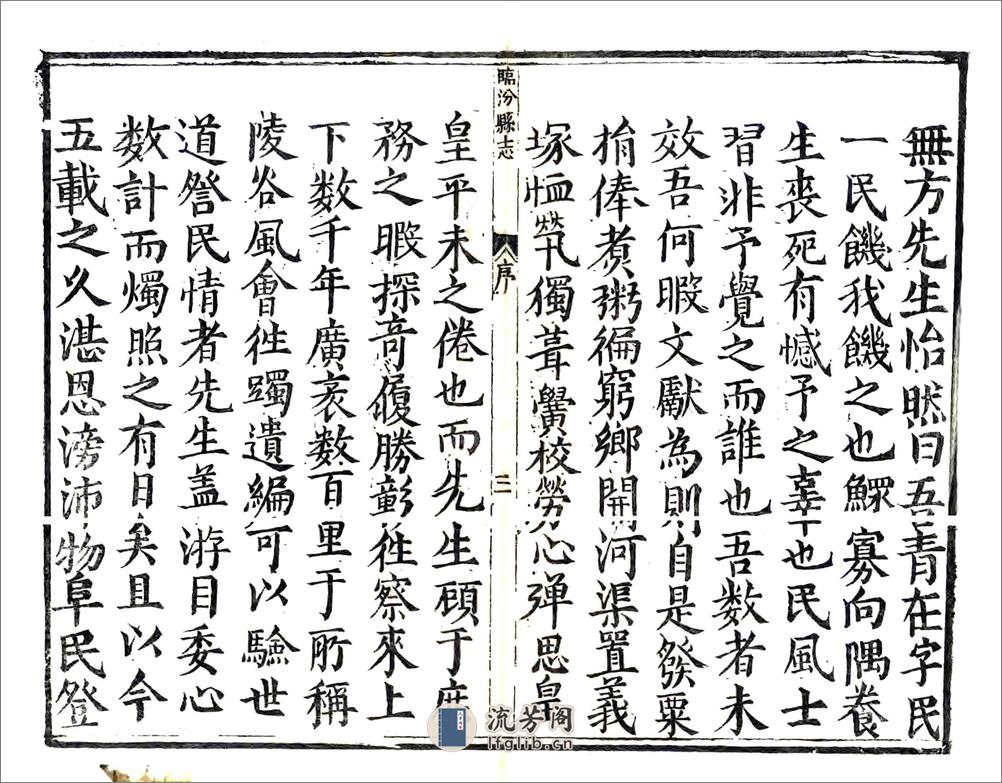 無方先生怡然曰吾責在字民
一民饑我饑之也鰥寡向隅養
生喪死有憾予之辜也民風士
習非予覺之而誰也吾数者未
效吾何暇文獻為則自是發粟
捐俸煮粥徧窮鄉開河渠置義
塚恤煢獨葺黌校勞心殫思皐
臨汾縣志
序
三
皇平未之倦也而先生顧于庶
務之暇探奇履勝彰徃察來上
下数千年廣袤数百里于所稱
陵谷風會徃躅遺編可以驗世
道詧民情者先生盖游目委心
数計而燭照之有日矣且以今
五載之久湛恩滂沛物阜民登
流芳阁
lfglib.cn